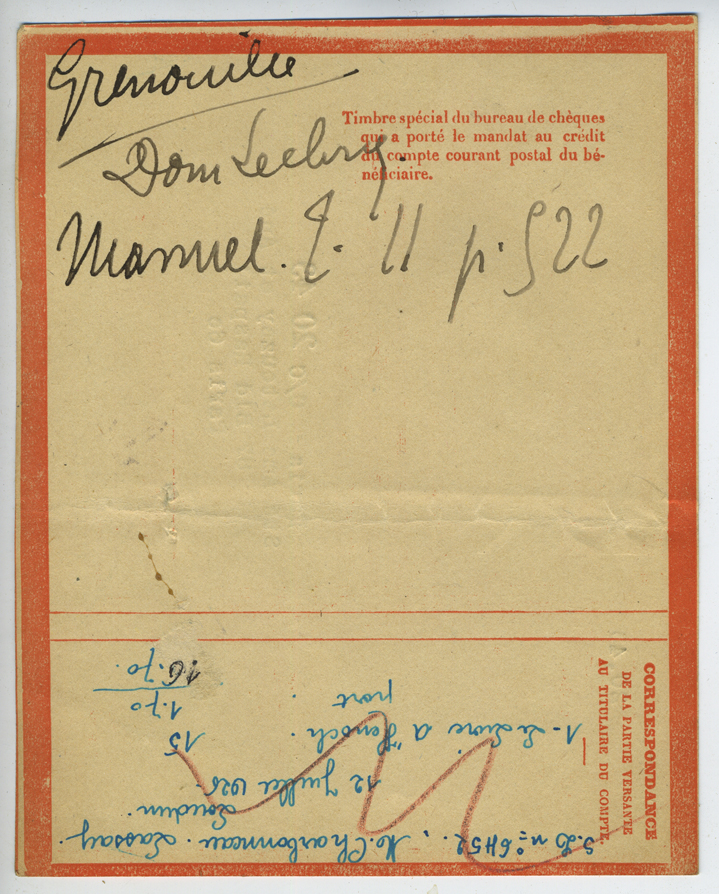 Grenouille
Dom Leclercq
Manuel. T. II p. 522
Timbre spécial du bureau de chèques
qui a porté le mandat au crédit
du compte courant postal du bé-
néficiaire.
CORRESPONDANCE
DE LA PARTIE VERSANTE
AU TITULAIRE DU COMPTE.
Charbonneau. Lassay.
Loudun.
12 Juillet 1926
1 - Le Livre d'Henoch. 15
port 1.70
16.70.